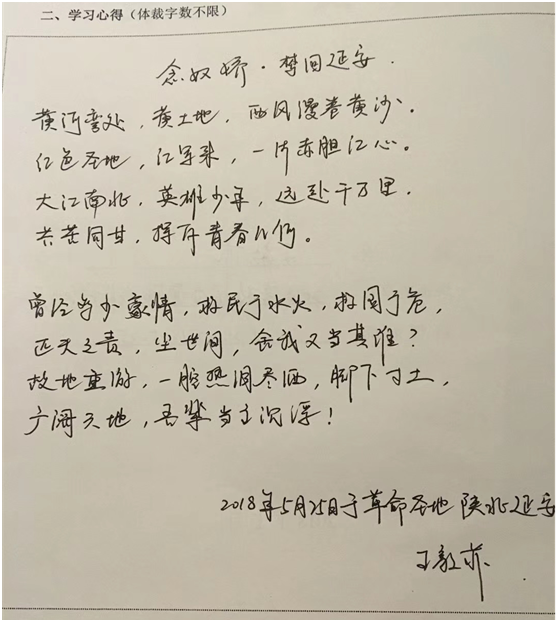 二、学习心得（体裁字数不限）
念奴娇·梦回延安
黄河弯处，黄土地，西风漫卷黄沙。
红色圣地，红军来，一片赤胆红心。
大江南北，英雄少年，远赴千万里，
共苦同甘，挥斥青春几何。
曾经多少豪情，救民于水火，救国于危，
匹夫之责，坐世间，舍我又当其谁？
故地重游，一腔热泪尽洒，脚下寸土，
广阔天地，吾辈当主沉浮！
2018年5月25日于革命圣地陕北延安
王毅亦